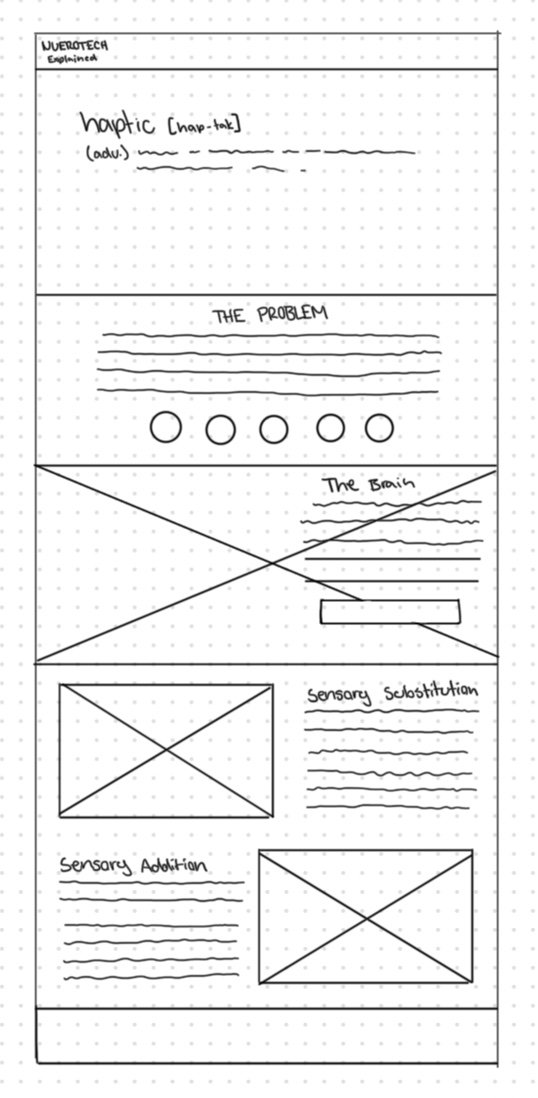 NUEROTECH
Explained
haptic [hap-tak]
(adv.)
THE PROBLEM
The Brain
Sensary Substitution
Sensary Addition